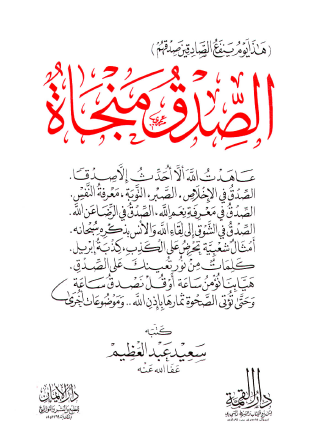 (هَذَا يَوْمُ يَنفَعُ الصَّادِقِينَ صِدْقُهُمْ)
الصِّدْقُ مَنْجَاةٌ
عَاهَدْتُ اللَّهَ أَلَّا أُحَدِّثَ إِلَّا صِدْقًا.
الصِّدْقُ فِي الْإِخْلَاصِ. الصَّبْرِ. التَّوْبَةِ. مَعْرِفَةِ النَّفْسِ.
الصِّدْقُ فِي مَعْرِفَةِ نِعَمِ اللَّهِ. الصِّدْقُ فِي الرِّضَا عَنِ اللَّهِ.
الصِّدْقُ فِي الشَّوْقِ إِلَى لِقَاءِ اللَّهِ وَالْأُنْسِ بِذِكْرِهِ سُبْحَانَهُ.
أَمْثَالٌ شَعْبِيَّةٌ تُحَرِّضُ عَلَى الْكَذِبِ. كِذْبَةُ إِبْرِيلَ.
كَلِمَاتٌ مِنْ نُورٍ تُعِينُكَ عَلَى الصِّدْقِ.
هَيَّا بِنَا نُؤْمِنْ سَاعَةً أَوْ قُلْ نَصْدُقْ سَاعَةً
وَحَتَّى تُؤْتِي الصَّحْوَةُ ثِمَارَهَا بِإِذْنِ اللَّهِ.. وَمَوْضُوعَاتٌ أُخْرَى
كَتَبَهُ
سَعِيد عَبْدُ الْعَظِيمِ
عَفَا اللهُ عَنْهُ
دار القمة
دار الإيمان